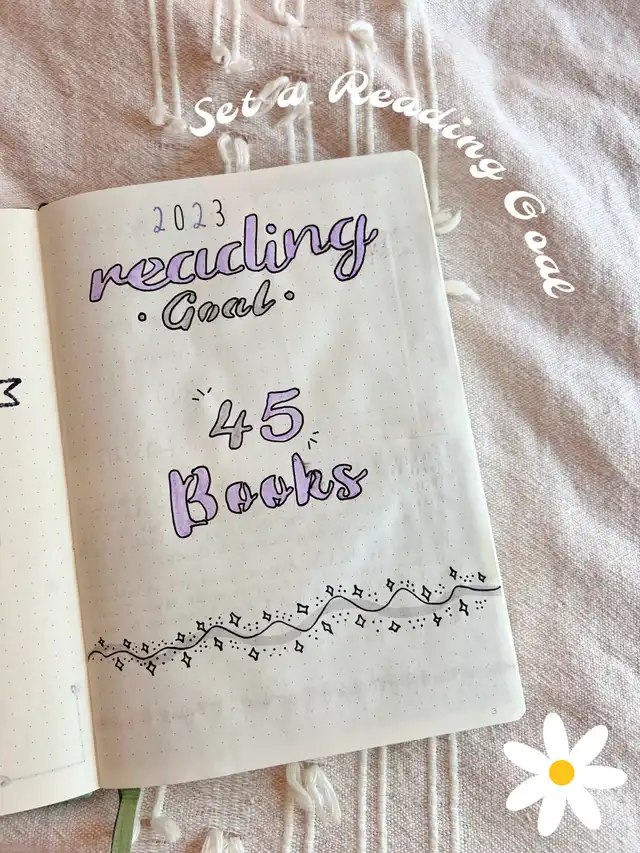 Set a Reading Goal
2023
reading
• Goal •
45
Books
3